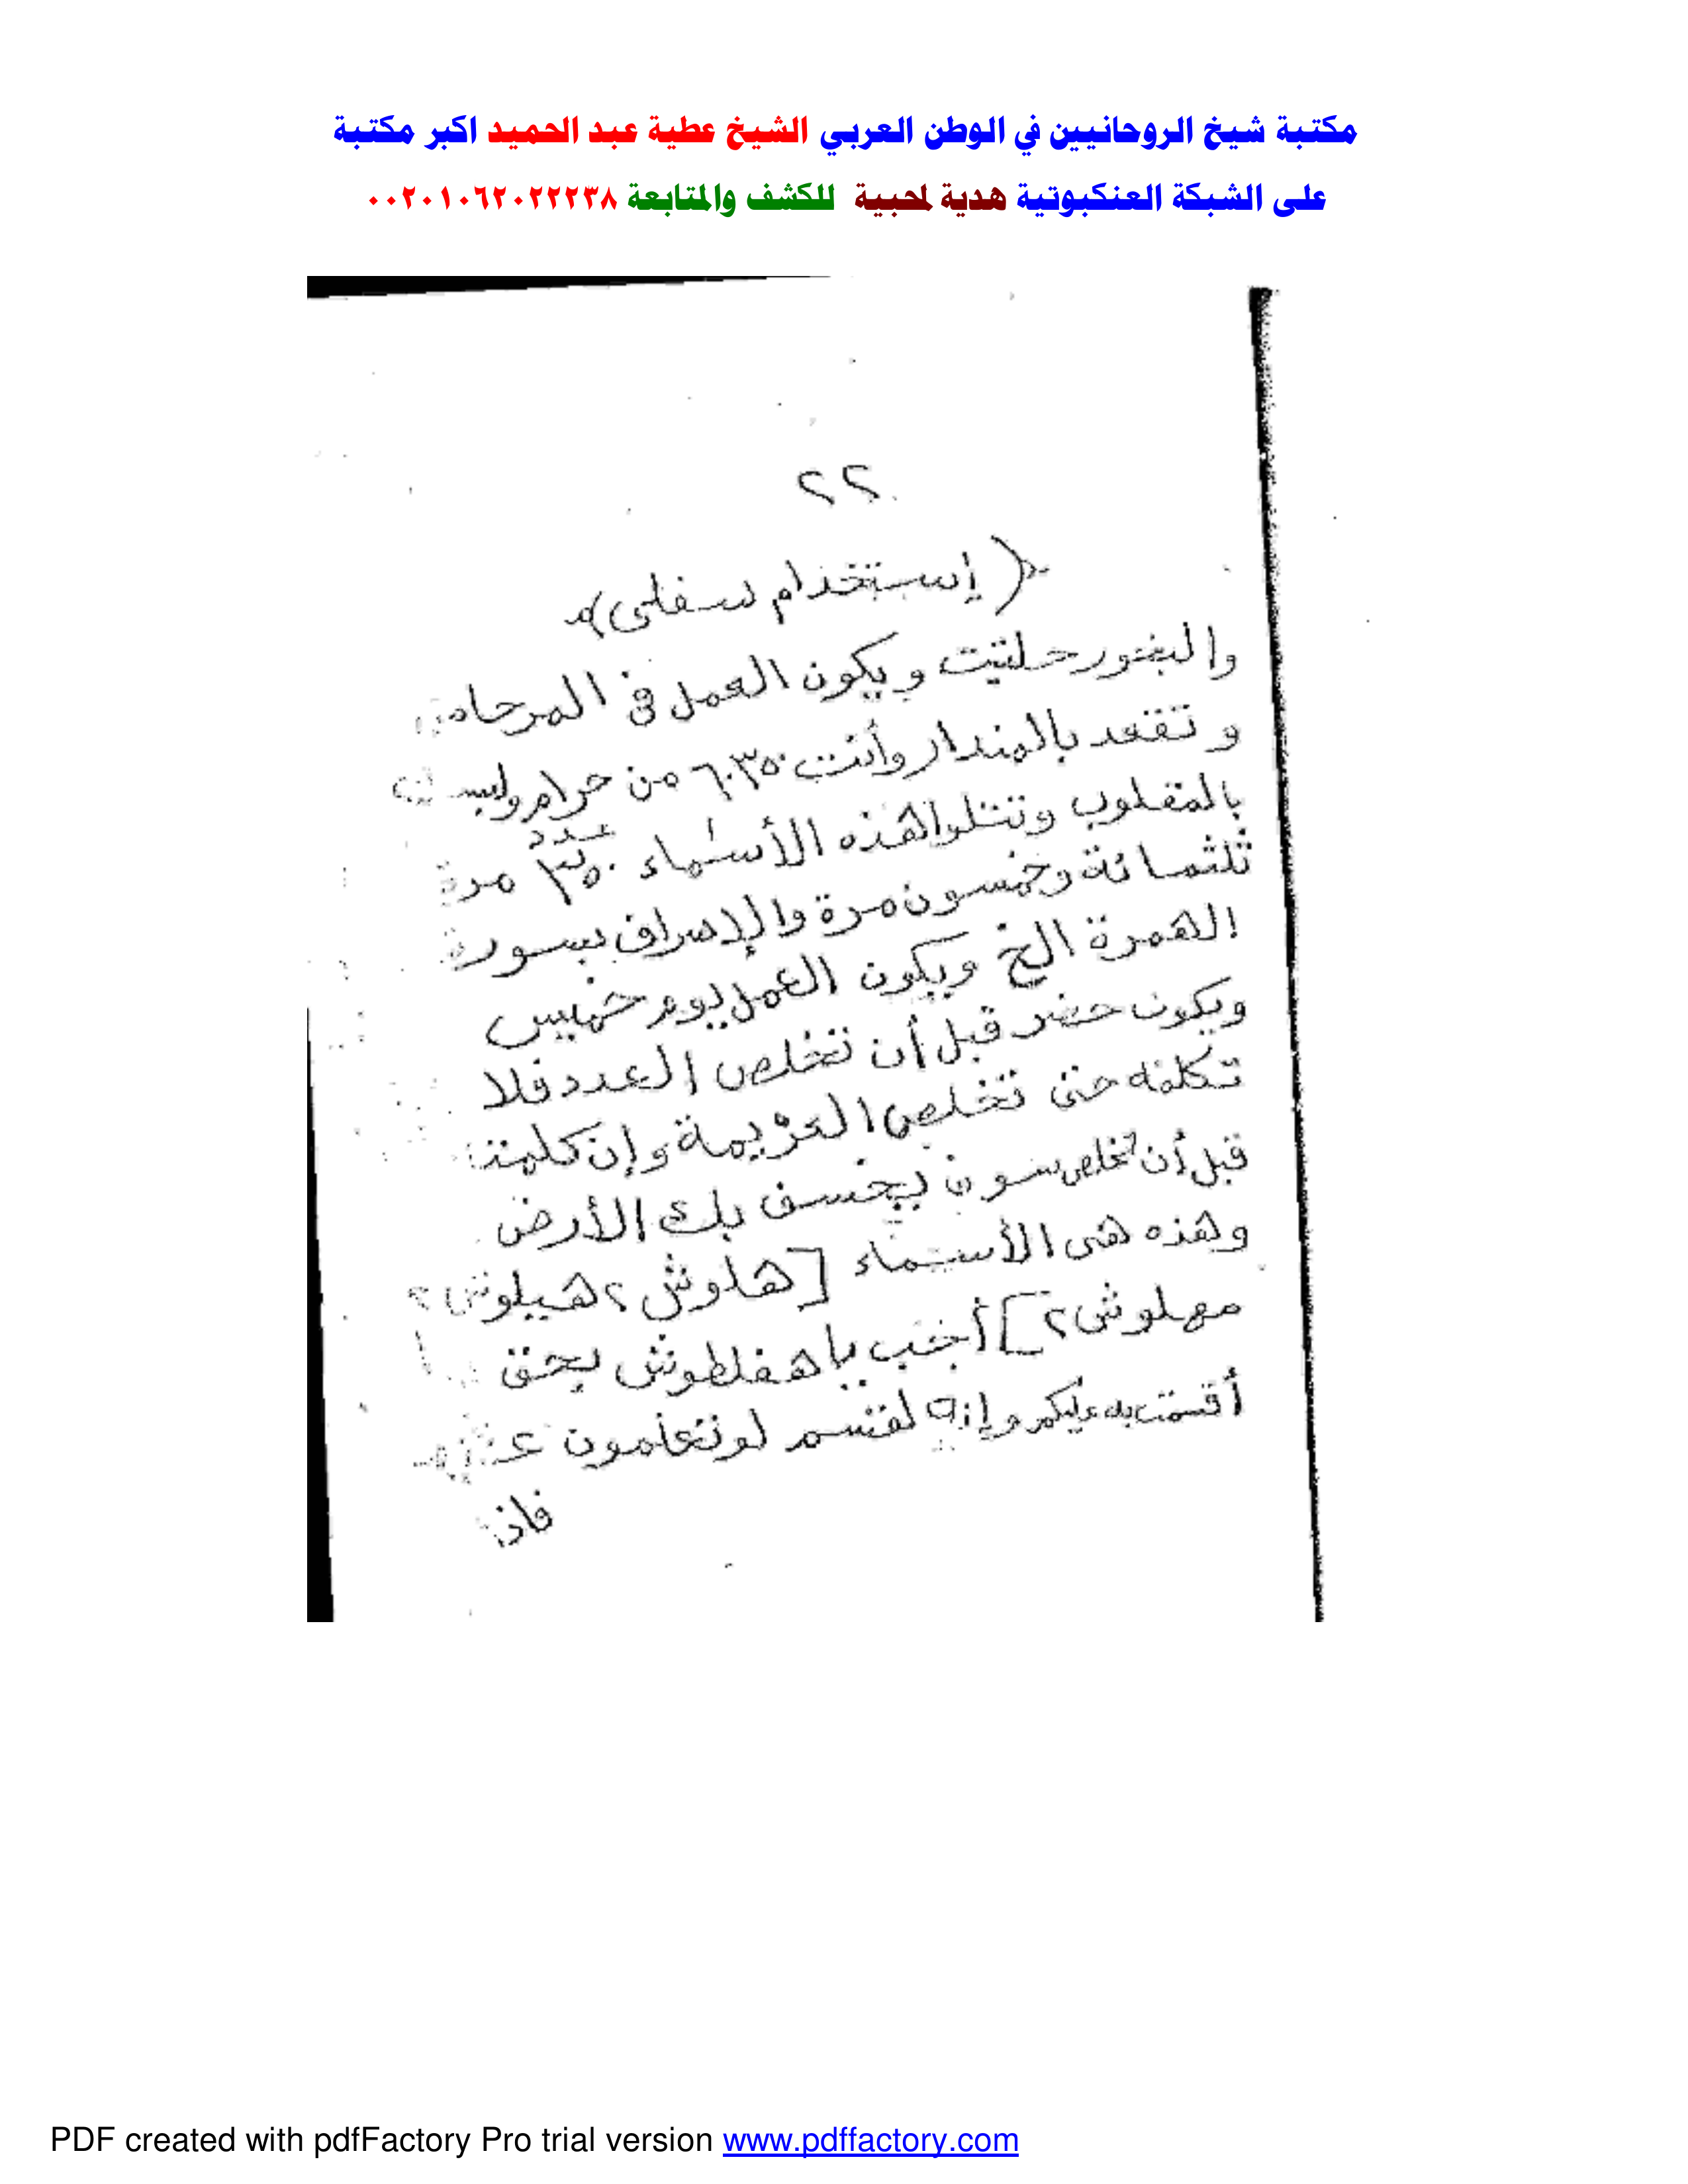 مكتبة شيخ الروحانيين في الوطن العربي الشيخ عطية عبد الحميد اكبر مكتبة
على الشبكة العنكبوتية هدية لمحبية للكشف والمتابعة ٠٠٢٠١٠٦٢٠٢٢٢٣٨
٢٢
(إستخدام سفلى)
والبخور حلتيت ويكون العمل فى المرحاض
وتقعد بالمندار وأنت ٦٠٣٥٠ من حرام ولبسك
بالمقلوب وتتلوا هذه الأسماء عدد ٣٥٠ مرة
ثلثمائة وخمسون مرة والإصراف بسورة
الهمزة الخ ويكون العمل يوم خميس
ويكون حضر قبل أن تخلص العدد فلا
تكلمه حتى تخلص العزيمة وإن كلمته
قبل أن تخلص سوف يخسف بك الأرض
وهذه هى الأسماء [هلوش ٢ هيلوش ٢
مهلوش ٢] أجب يا هفلطوش بحق
أقسمت به عليكم وإنه لقسم لو تعلمون عظيم
فاذا
PDF created with pdfFactory Pro trial version www.pdffactory.com